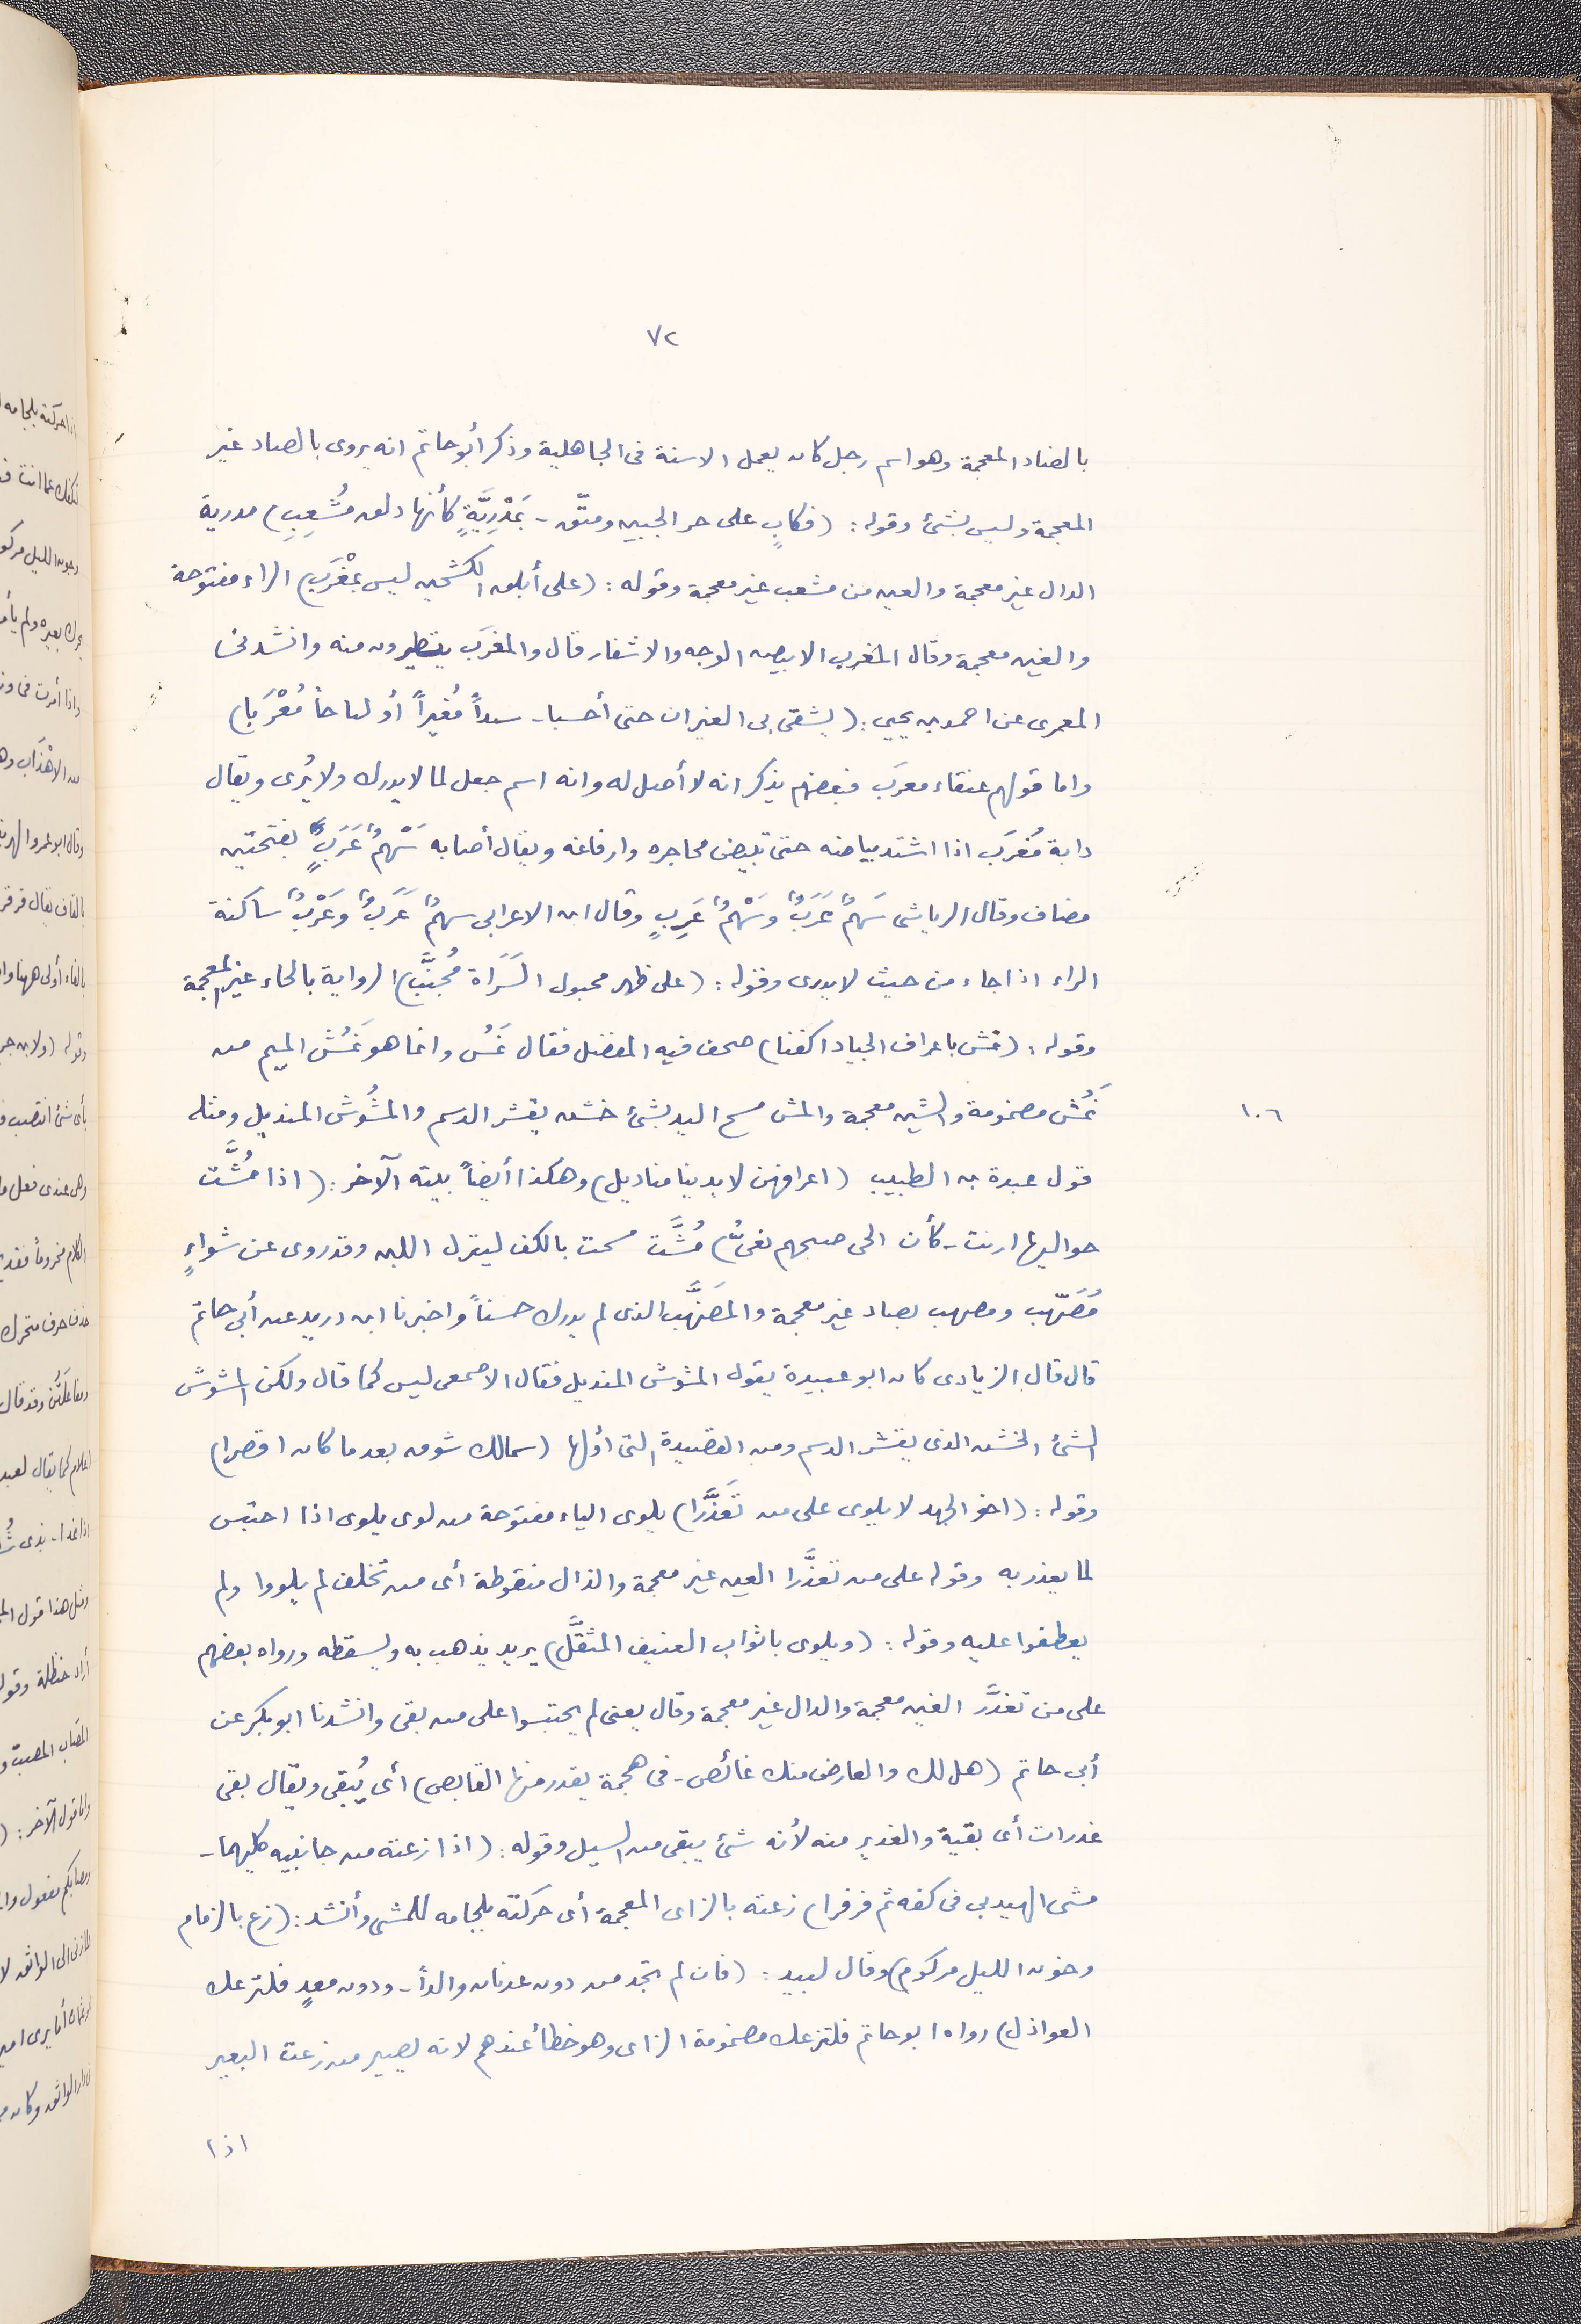 ٧٢
بالضاد المعجمة وهو اسم رجل كان يعمل الاسنة فى الجاهلية وذكر أبو حاتم انه يروى بالصاد غير
المعجمة وليس بشئ وقوله : (فكابٍ على حر الجبين ومتّق - بمَدْرِيَّةٍ كأنها ذلق مُشْعِبِ) مدرية
الدال غير معجمة والعين من مشعب غير معجمة وقوله : (على أبلق الكشحين ليس بمُغْرَبِ) الراء مفتوحة
والغين معجمة وقال المغرب الابيض الوجه والاشفار قال والمغرَب يتطيرون منه وانشدنى
المعمرى عن احمد بن يحيى : (يشقى بى الغيران حتى أحسبا - سيداً مُغيراً أو لياحاً مُغْرَبا)
واما قولهم عنقاء مغرَب فبعضهم يذكر انه لا أصل له وانه اسم جعل لما لا يدرك ولا يُرى ويقال
دابة مُغرَب اذا اشتد بياضه حتى تبيض محاجره وارفاغه ويقال أصابه سَهْمُ غَرَبٍ بفتحتين
مضاف وقال الرياشى سَهمٌ غَرَبٌ وسَهْمُ غَرِبٍ وقال ابن الاعرابى سهمٌ غَرَبٌ وغَرْبٌ ساكنة
الراء اذا جاء من حيث لا يدرى وقوله : (على ظهر محبول السَّرَاة مُجَنَّبِ) الرواية بالحاء غير المعجمة
وقوله : (نمش باعراف الجياد اكفنا) صحف فيه المفضل فقال نَمُس وانما هو نَمُش الميم من
نَمُش مضمومة والشين معجمة والمش مسح اليد بشئ خشن يقشر الدسم والمشُوش المنديل ومثله
١٠٦
قول عبدة بن الطبيب (اعرافهن لايدينا مناديل) وهكذا أيضاً بيته الآخر : (اذا مُشَّت
حواليها ارنت - كأن الحى صبحهم نعىُّ) مُشَّت مسحت بالكف لينزل اللبن وقد روى عن شواءٍ
مُضَهّب ومصهب بصاد غير معجمة والمضَهَّب الذى لم يدرك حسناً واخبرنا ابن دريد عن أبى حاتم
قال قال الزيادى كان ابو عبيدة يقول المشوش المنديل فقال الاصمعى ليس كما قال ولكن المشوش
الشئ الخشن الذى يقشر الدسم ومن القصيدة التى أولها (سمالك شوق بعد ما كان اقصرا)
وقوله : (اخو الجهد لا يلوى على من تَعَذَّرا) يلوى الياء مفتوحة من لوى يلوى اذا احتبس
لما يعذر به وقوله على من تعذَّرا العين غير معجمة والذال منقوطة أى من تخلف لم يلووا ولم
يعطفوا عليه وقوله : (ويلوى باثواب العنيف المثقَّل) يريد يذهب به ويسقطه ورواه بعضهم
على من تغدَّر الغين معجمة والدال غير معجمة وقال يعنى لم يحتبسوا على من بقى وانشدنا ابو بكر عن
أبى حاتم (هل لك والعارض منك غائض - فى هجمة يغدر منها القابض) أى يُبقى ويقال بقى
غدرات أى بقية والغدير منه لأنه شئ يبقى من السيل وقوله : (اذا زعته من جانبيه كليهما -
مشى الهيدبى فى كفه ثم فرفرا) زعته بالزاى المعجمة أى حركته بلجامه للمشى وأنشد : (زع بالزمام
وجوز الليل مركوم) وقال لبيد : (فان لم تجد من دون عدنان والداً - ودون معدٍ فلتزعك
العواذل) رواه ابو حاتم فلتزعك مضمومة الزاى وهو خطأ عندهم لانه يصير من زعت البعير
اذا